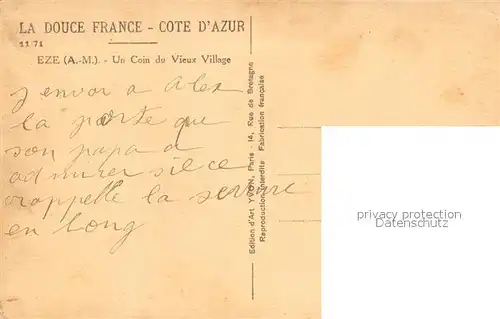 LA DOUCE FRANCE - COTE D'AZUR
11/71
EZE (A.-M.). - Un Coin du Vieux Village
J envoi a Alex
la porte que
son papa a
admirer si ce
rappelle la
en long
Edition d'Art YVON, Paris - 14, Rue de Bretagne
Reproduction interdite Fabrication française
privacy protection
AnsichtskartenHandel.de